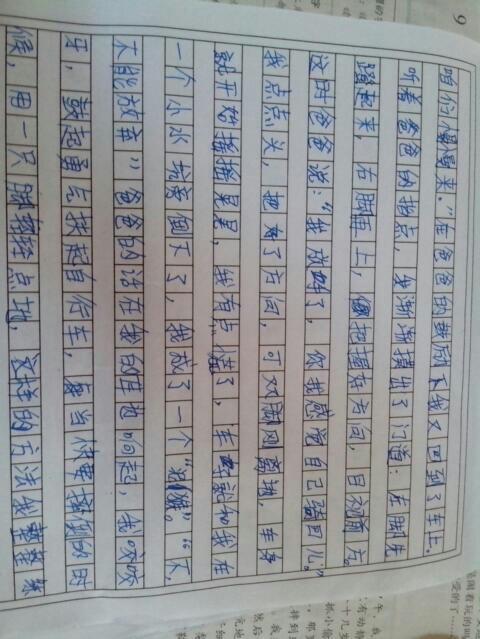 咱们慢慢来。”在爸爸的鼓励下我又回到了车上。
听着爸爸的指点，我渐渐摸出了门道：左脚先
蹬起来，右脚再上，把握好方向，目视前方。
这时爸爸说：“我放手了，你找感觉自己骑回儿。”
我点点头，把好了方向，可双脚刚离地，车身
就开始摇摇晃晃，我有点慌了，车好似和我在
一个小水坑旁倒下了，我成了一个“泥猴”。“不，
不能放弃”爸爸的话在我的耳边响起，我咬咬
牙，鼓起勇气扶起自行车，每当快要摔倒的时
候，用一只脚轻轻点地，这样的方法我整整练
9